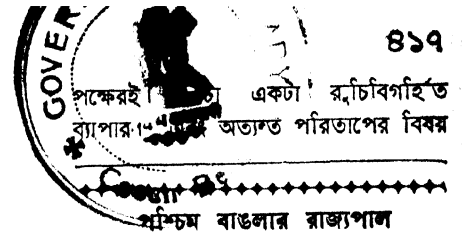 GOVER
৪১৭
পক্ষেরই একটা রুচিবিগর্হিত
ব্যাপার অত্যন্ত পরিতাপের বিষয়
পশ্চিম বাঙলার রাজ্যপাল